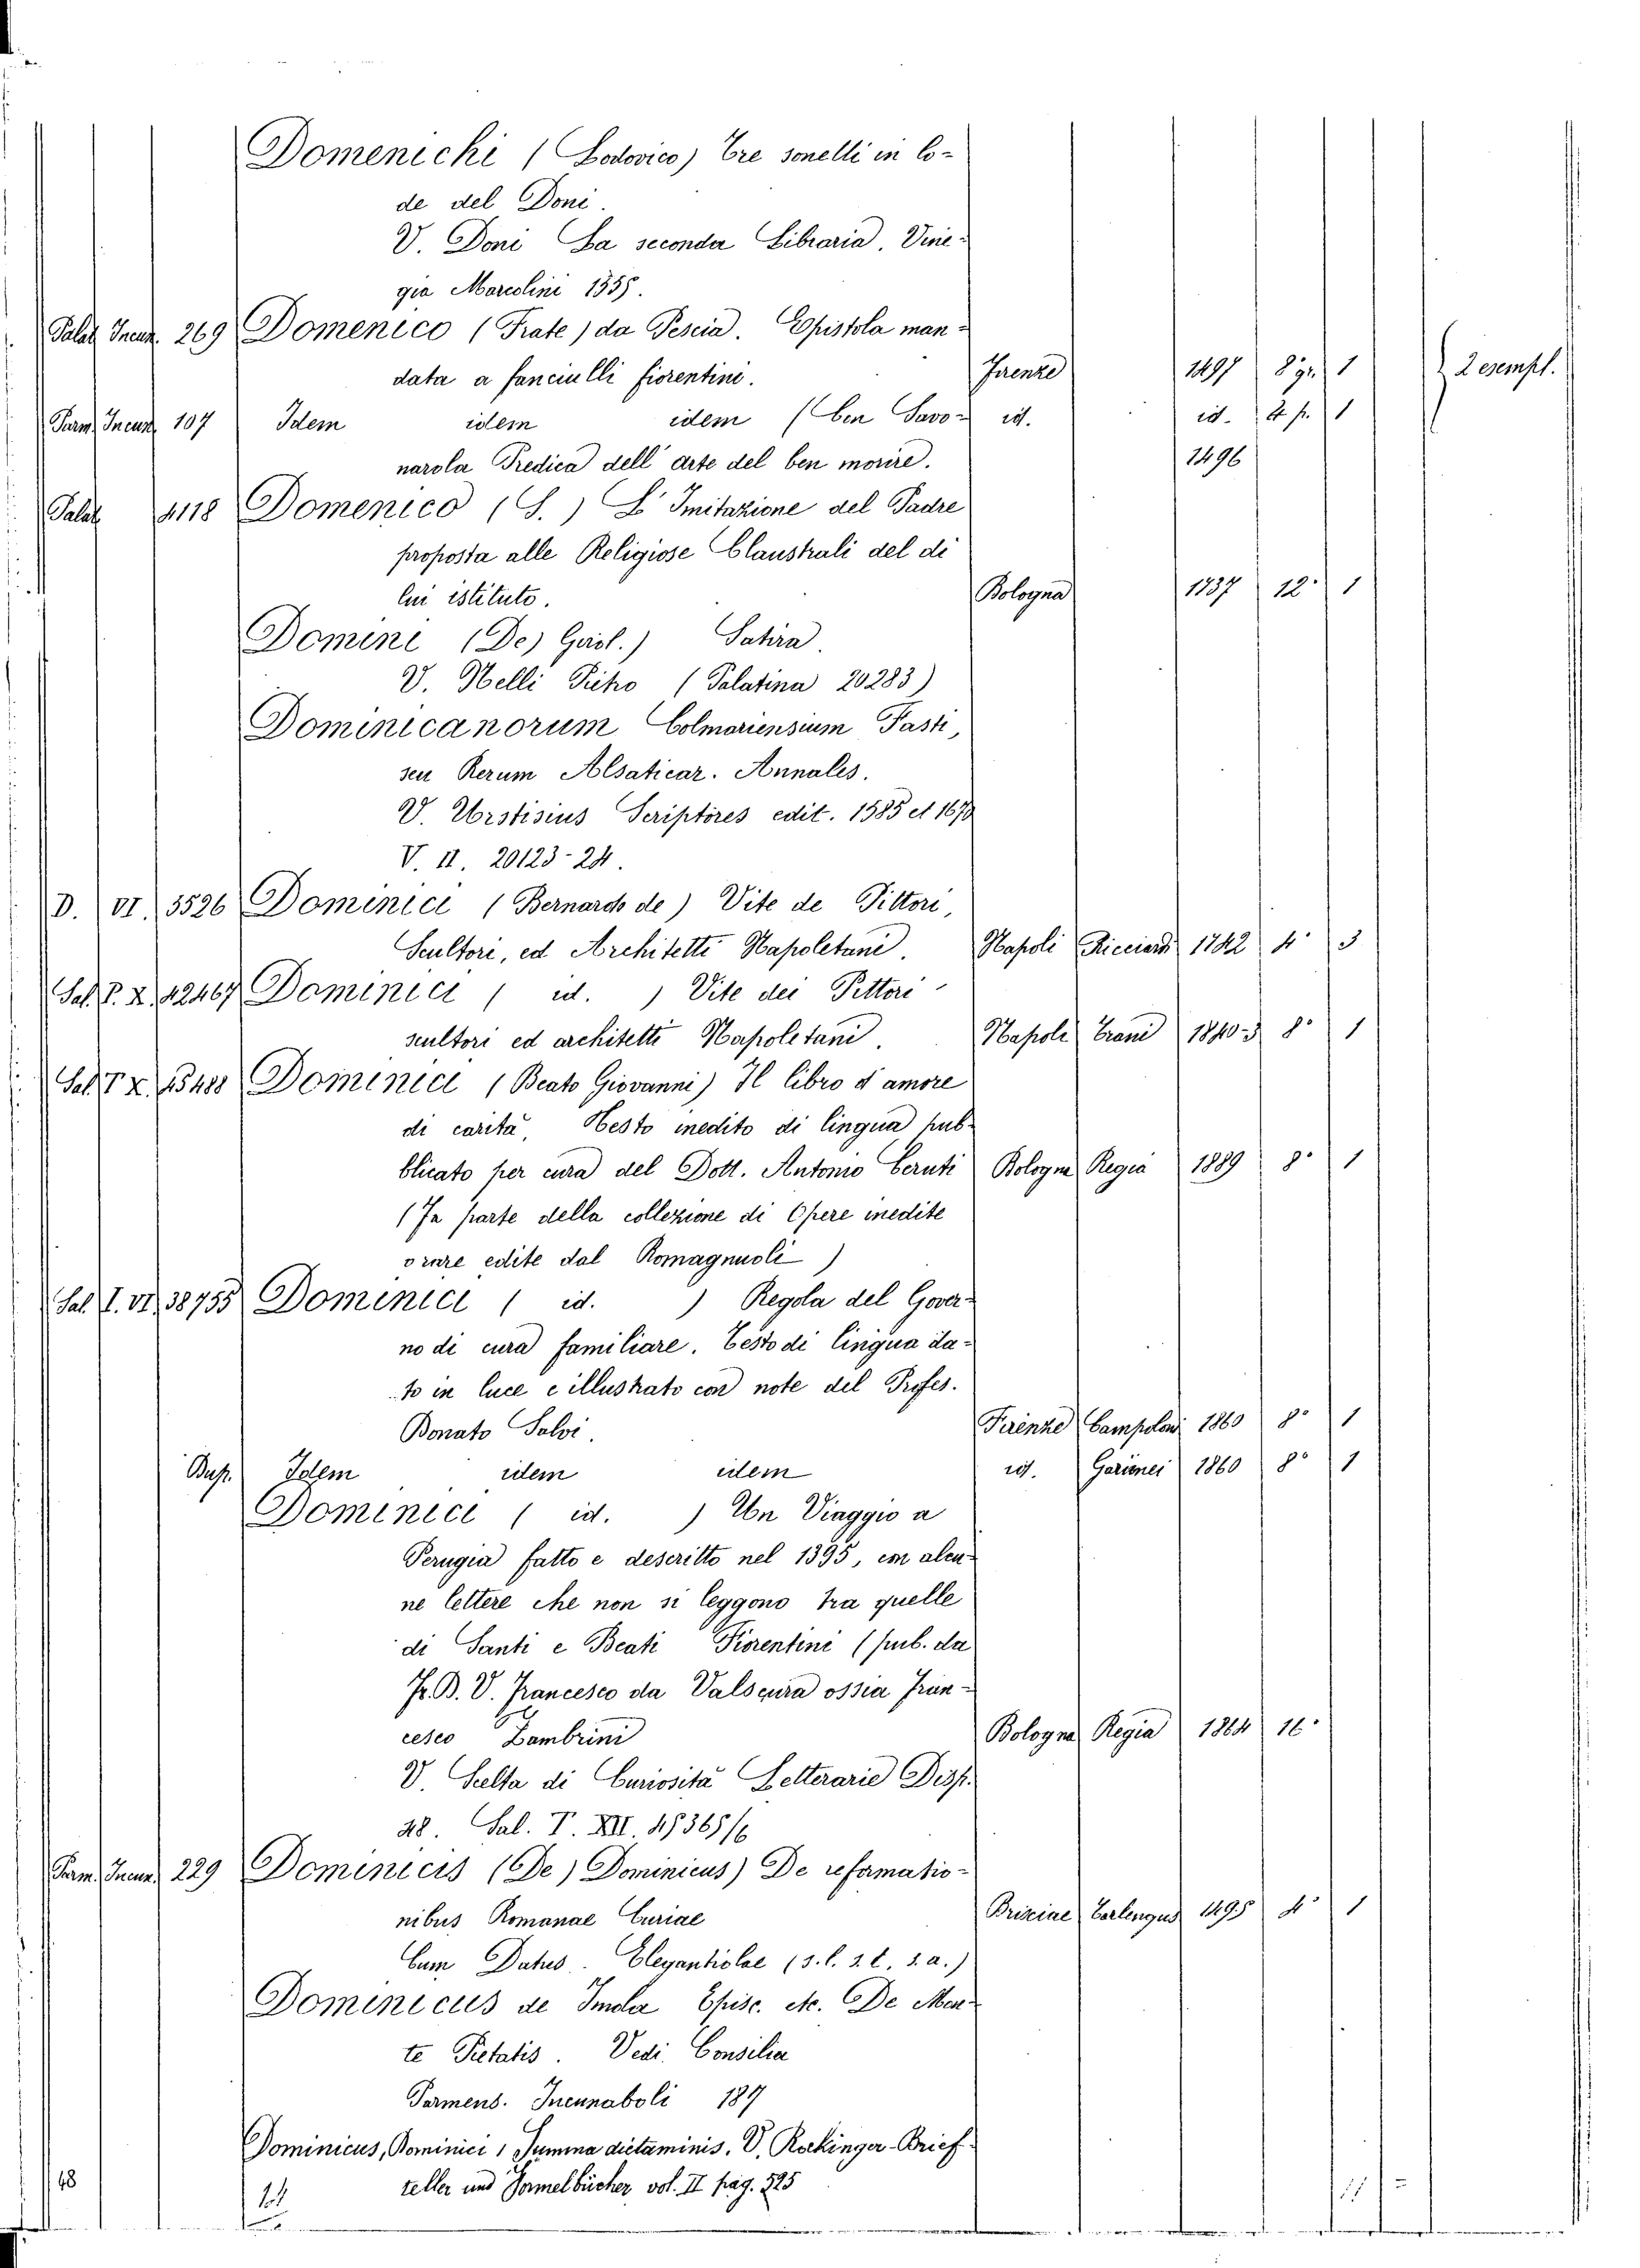 Domenichi (Lodovico) Tre sonetti in lo-
de del Doni.
V. Doni La seconda Libraria. Vine-
gia Marcolini 1555.
Palat. Incun. 269 Domenico (Frate) da Pescia. Epistola man-
data a fanciulli fiorentini. Firenze 1497 8 gr. 1 2 esempl.
Parm. Incun. 107 Idem idem idem (Con Savo- id. id. 4 p. 1
narola Predica dell' arte del ben morire. 1496
Palat. 4118 Domenico (S.) L' Imitazione del Padre
proposta alle Religiose Claustrali del di
lui istituto. Bologna 1737 12° 1
Domini (De) Gasl.) Satira.
V. Nelli Pietro (Palatina 20283)
Dominicanorum Colmariensium Fasti,
seu Rerum Alsaticar. Annales.
V. Urstisius Scriptores edit. 1585 et 1670
V. II. 20123-24.
D. VI. 3526 Dominici (Bernardo de) Vite de Pittori,
Scultori, ed Architetti Napoletani. Napoli Ricciardi 1742 4° 3
Sal. P. X. 42467 Dominici (id.) Vite dei Pittori
scultori ed architetti Napoletani. Napoli Trani 1840-3 8° 1
Sal. T. X. 45488 Dominici (Beato Giovanni) Il libro d'amore
di carità, Testo inedito di lingua pub-
blicato per cura del Dott. Antonio Ceruti Bologna Regia 1889 8° 1
(Fa parte della collezione di Opere inedite
o rare edite dal Romagnuoli)
Sal. I. VI. 38755 Dominici (id.) Regola del Gover-
no di cura familiare. Testo di lingua da-
to in luce e illustrato con note del Profes.
Donato Salvi. Firenze Campolmi 1860 8° 1
Bup. Idem idem idem id. Garinei 1860 8° 1
Dominici (id.) Un Viaggio a
Perugia fatto e descritto nel 1395, in alcu-
ne lettere che non si leggono tra quelle
di Santi e Beati Fiorentini (pub. da
Fr. B. V. Francesco da Valscura ossia Fran-
cesco Zambrini Bologna Regia 1864 16°
V. Scelta di Curiosità Letterarie Disp.
48. Sal. T. XII. 45365/6
Parm. Incun. 229 Dominicis (De) Dominicus) De reformatio-
nibus Romanae Curiae Brixiae Carlengus 1495 4° 1
Cum Datus. Elegantiolae (s. l. s. t. s. a.)
Dominicus de Imola Episc. etc. De Mon-
te Pietatis. Vedi Consilia
Parmens. Incunaboli 187
Dominicus, Dominici, Summa dictaminis. V. Rockinger-Brief-
teller und Formelbücher, vol. II pag. 525
48